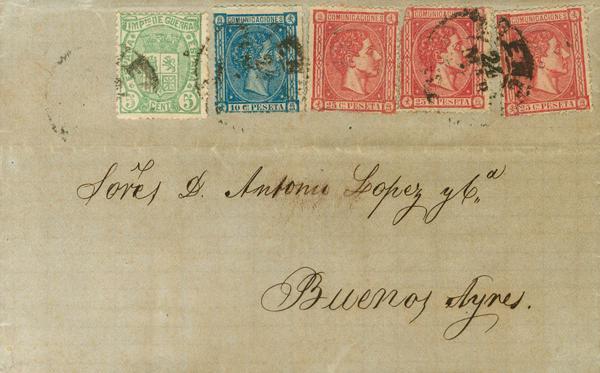 IMPTO DE GUERRA
5 CENT 5
COMUNICACIONES
10 CS PESETA
COMUNICACIONES
25 CS PESETA
COMUNICACIONES
25 CS PESETA
COMUNICACIONES
25 CS PESETA
Sores D. Antonio Lopez y Ca
Buenos Ayres.